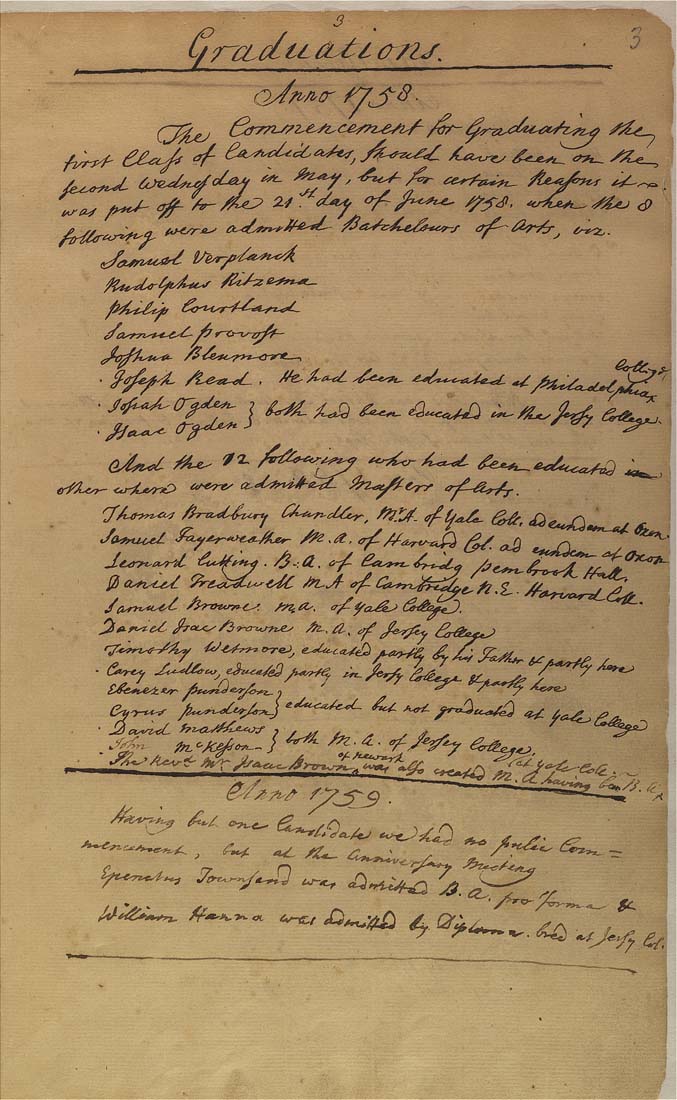 3
3
Graduations.
Anno 1758.
The Commencement for Graduating the
first Class of Candidates, should have been on the
second Wednesday in May, but for certain Reasons it
was put off to the 21.st day of June 1758. when the 8
following were admitted Batchelours of Arts, viz.
Samuel Verplanck
Rudolphus Ritzema
Philip Courtland
Samuel Provost
Joshua Bleumore
College
· Joseph Read. He had been educated at Philadelphia
· Josiah Ogden } both had been educated in the Jersy College.
· Isaac Ogden
And the 12 following who had been educated in
other where were admitted Masters of Arts.
Thomas Bradbury Chandler, M.A. of Yale Coll. ad eundem at Oxon.
Samuel Fayerweather M.A. of Harvard Col. ad eundem at Oxon
Leonard Cutting. B.A. of Cambridg Pembrook Hall.
Daniel Treadwell M A of Cambridge N.E. Harvard Coll.
Samuel Browne. M A. of Yale College.
Daniel Isac Browne M.A. of Jersy College
Timothy Wetmore, educated partly by his Father & partly here
· Carey Ludlow, educated partly in Jersy College & partly here
Ebenezer Punderson
Cyrus Punderson } educated but not graduated at Yale College
· David Matthews
John McKesson } both M.A. of Jersey College.
of Newark at Yale Coll.
· The Revd. Mr. Isaac Brown was also created M.A having been B.A
Anno 1759.
Having but one Candidate we had no pulic Com=
mencement, but at the Anniversary Meeting
Epenetus Townsand was admitted B.A. pro forma &
William Hanna was admitted by Diploma. bred at Jersy Col.